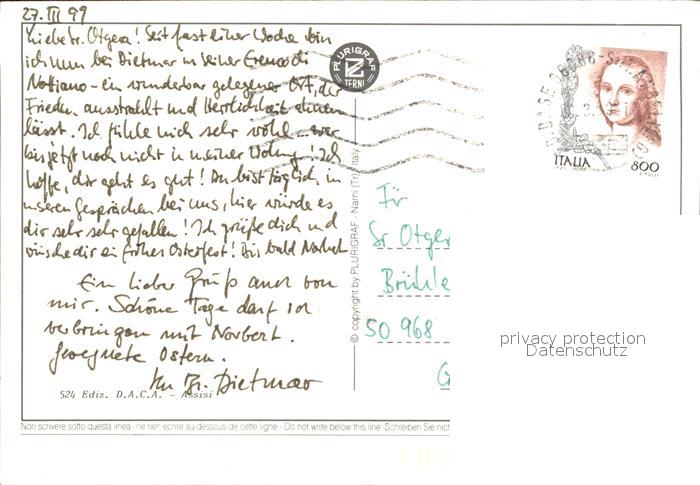 27. III 99
Liebe Sr. Otgera! Seit fast einer Woche bin
ich nun bei Dietmar in seiner Eremo di
- ein wunderbar gelegener Ort, der
Frieden ausstrahlt und Herrlichkeit ahnen
lässt. Ich fühle mich sehr wohl - war
bis jetzt noch nicht in meiner Ich
hoffe, dir geht es gut! Du bist täglich in
unseren Gesprächen bei uns, hier würde es
dir sehr sehr gefallen! Ich grüße dich und
wünsche dir ein frohes Osterfest! Bis bald Norbert
Ein lieber Gruß auch von
mir. Schöne Tage darf ich
verbringen mit Norbert.
Gesegnete Ostern.
Br. Dietmar
524 Ediz. D.A.C.A. - Assisi
PLURIGRAF
TERNI
© copyright by PLURIGRAF - Narni (Tr) - Italy
ITALIA
800
Für
Sr Otger
Brühle
50 968
G
privacy protection
Datenschutz
Non scrivere sotto questa linea - ne rien écrire au-dessous de cette ligne - Do not write below this line Schreiben Sie nich